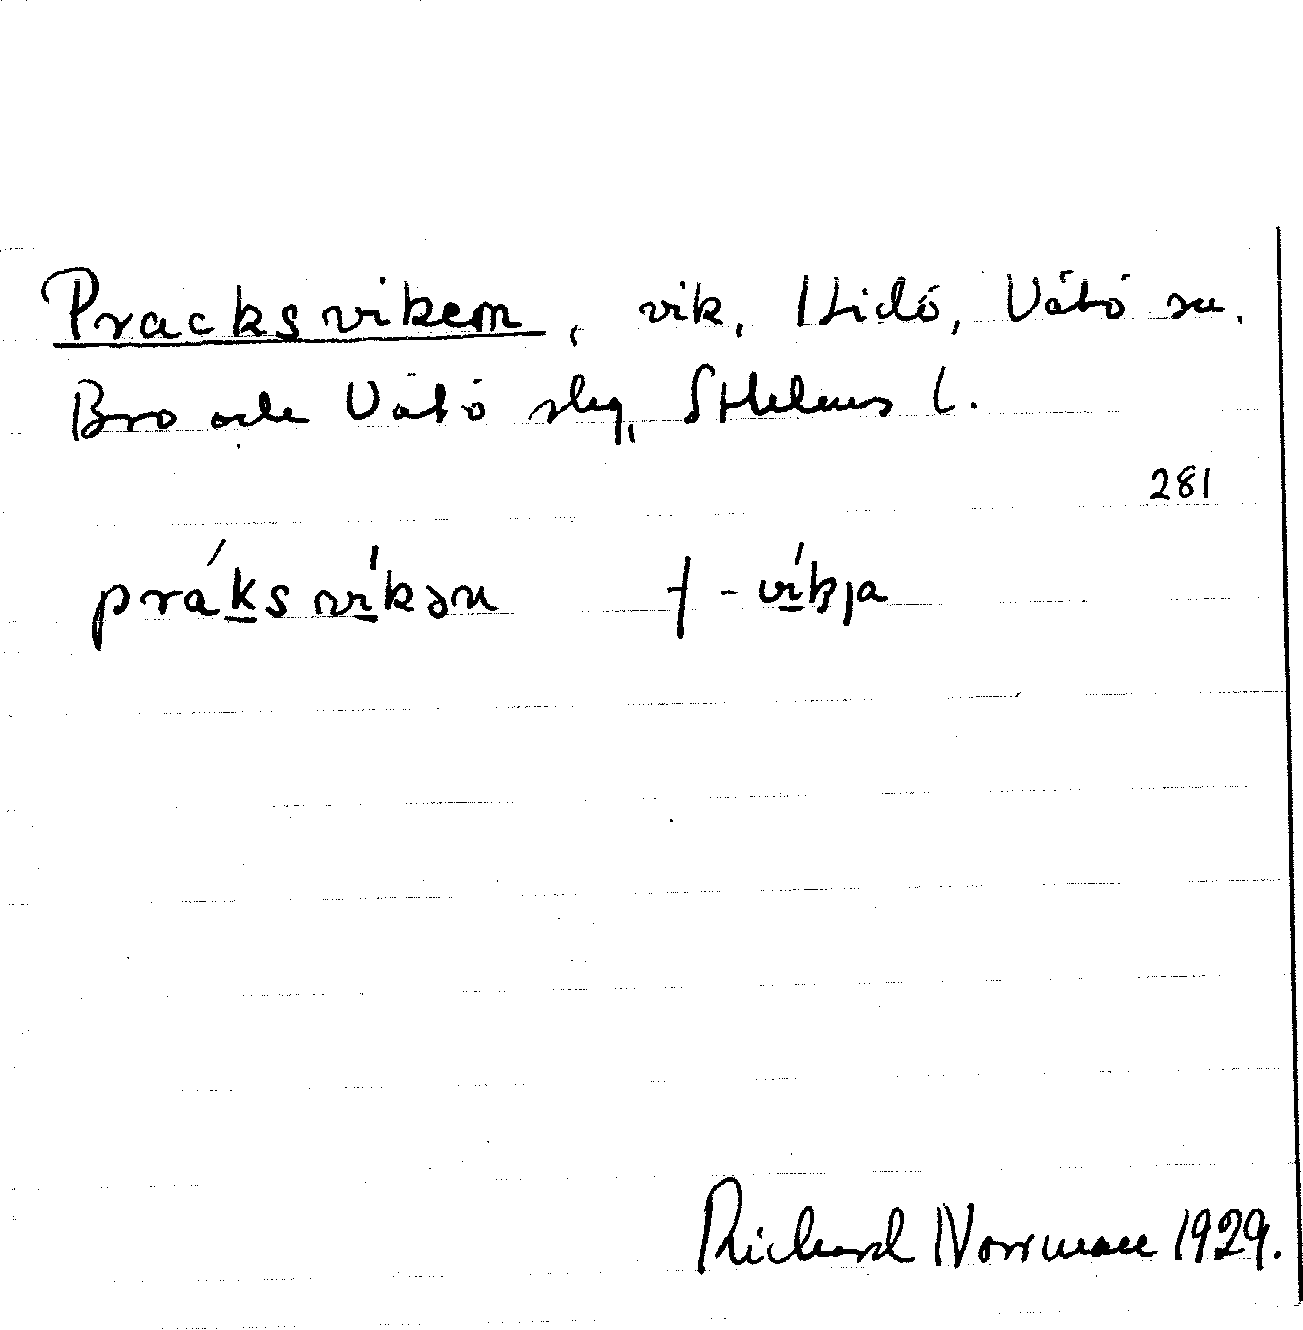 Pracksviken, vik, Lidö, Vätö sn.
Bro och Vätö slg, Sthlms l.
281
práksvíkən ɟ -víkja
Richard Norrman 1929.